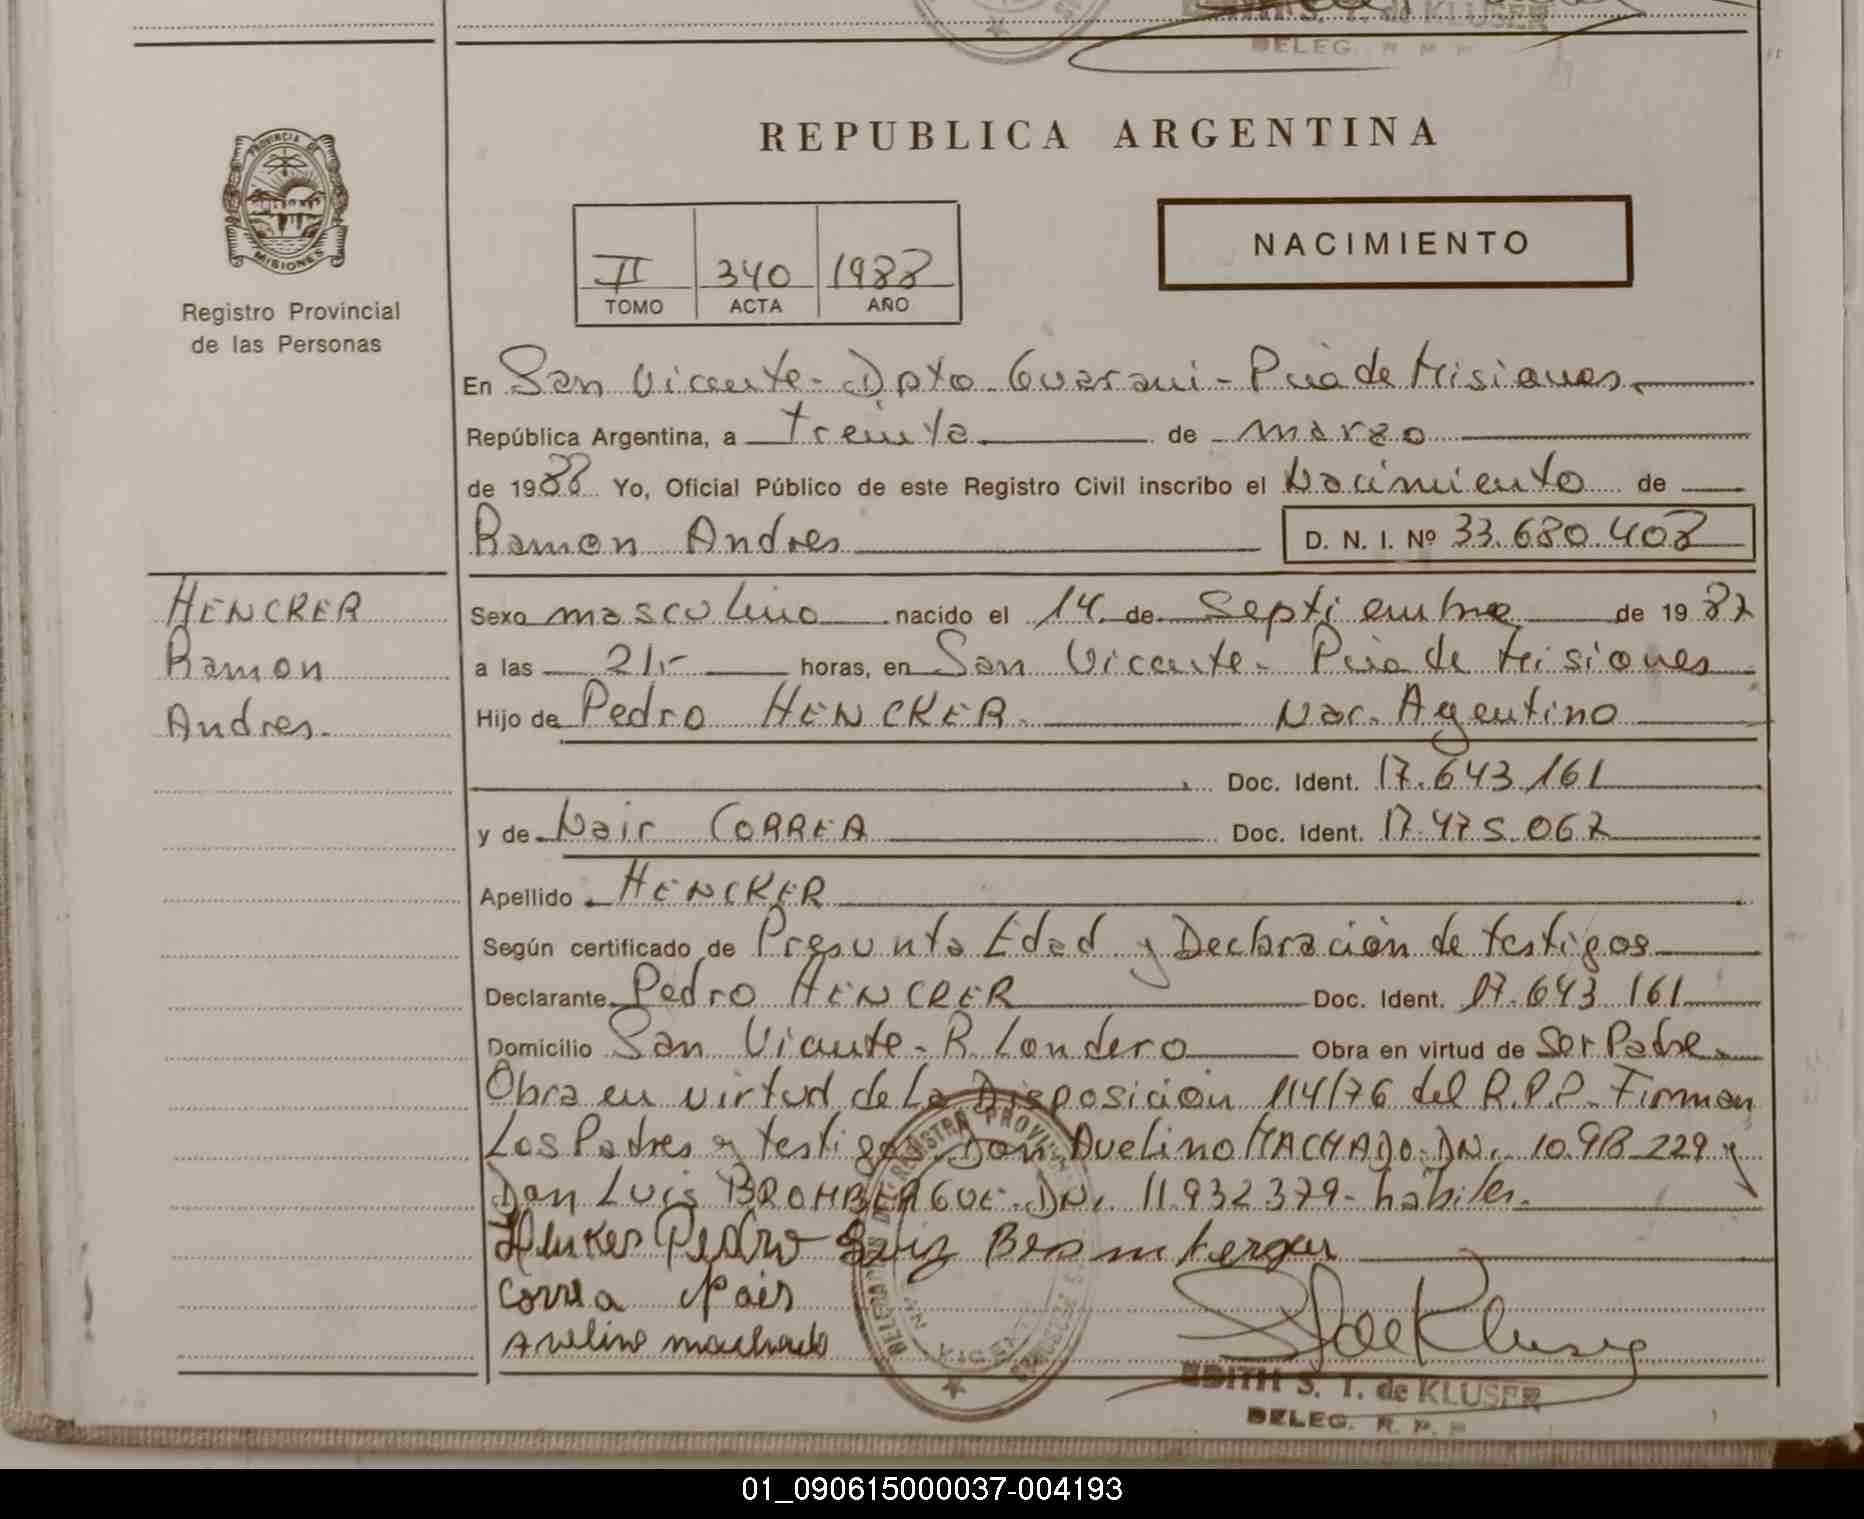 EDITH S. T. de KLUSER
DELEG. R. P. P.
REPUBLICA ARGENTINA
PROVINCIA DE MISIONES
Registro Provincial
de las Personas
NACIMIENTO
II 340 1988
TOMO ACTA AÑO
En San Vicente - Dpto Guarani - Pcia de Misiones
República Argentina, a Treinta de marzo
de 1988 Yo, Oficial Público de este Registro Civil inscribo el Nacimiento de
Ramon Andres D. N. I. Nº 33.680.408
HENCKER
Ramon
Andres.
Sexo masculino nacido el 14 de Septiembre de 1987
a las 21,- horas, en San Vicente - Pcia de Misiones
Hijo de Pedro HENCKER Nac. Argentino
Doc. Ident. 17.643.161
y de Nair CORREA Doc. Ident. 17.475.067
Apellido HENCKER
Según certificado de Presunta Edad y Declaración de testigos
Declarante Pedro HENCKER Doc. Ident. 17.643.161
Domicilio San Vicente - R. Londero Obra en virtud de Ser Padre
Obra en virtud de La Disposición 114/76 del R.P.P. - Firman
Los Padres y testigos Don Avelino MACHADO - DNI. 10.918.229 y
Don Luis BROMBERGUE - DNI. 11.932.379 - hábiles.
Pedro Luiz
Correa Nair
Avelino machado
S T de Kluser
EDITH S. T. de KLUSER
DELEG. R. P. P.
01_090615000037-004193